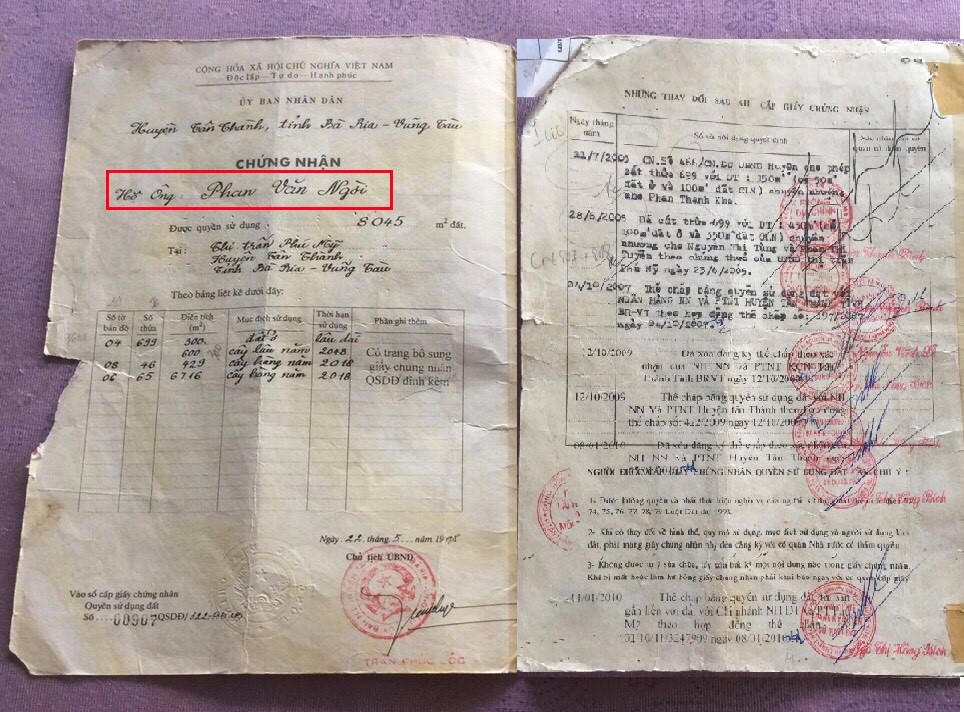 CỘNG HÒA XÃ HỘI CHỦ NGHĨA VIỆT NAM
Độc lập - Tự do - Hạnh phúc
ỦY BAN NHÂN DÂN
Huyện Tân Thành, tỉnh Bà Rịa - Vũng Tàu
CHỨNG NHẬN
Hộ Ông Phan Văn Ngời
Được quyền sử dụng 8045 m² đất.
Tại: Thị trấn Phú Mỹ
Huyện Tân Thành
Tỉnh Bà Rịa - Vũng Tàu
Theo bảng liệt kê dưới đây:
Số tờ bản đồ Số thửa Diện tích (m²) Mục đích sử dụng Thời hạn sử dụng Phần ghi thêm
04 699 300 đất ở lâu dài
600 cây lâu năm 2048
08 46 429 cây hàng năm 2018
06 65 6716 cây hàng năm 2018
Có trang bổ sung
giấy chứng nhận
QSDĐ đính kèm
Ngày 22 tháng 5 năm 19
Chủ tịch UBND
Vào sổ cấp giấy chứng nhận
Quyền sử dụng đất
Số 00907 QSDĐ/
TRẦN PHÚC LỘC
NHỮNG THAY ĐỔI SAU KHI CẤP GIẤY CHỨNG NHẬN
Ngày tháng năm Số và nội dung quyết định
21/7/2009 CN.Số 466/CN.ĐĐ UBND Huyện cho phép
cắt thửa 699 với DT: 150m² (có 50m²
đất ở và 100m² đất CLN) chuyển nhượng
cho Phan Thanh Kha.
28/8/2009 Đã cắt thửa 699 với DT: 450m²
100m² đất ở và 350m² đất CLN) chuyển
nhượng cho Nguyễn Thị Tùng và
Tuyền theo chứng thực của UBND thị trấn
Phú Mỹ ngày 23/6/2009.
04/10/2007 Thế chấp bằng quyền sử dụng đất
NGÂN HÀNG NN VÀ PTNT HUYỆN TÂN
BR-VT theo hợp đồng thế chấp số: 297/2007
ngày 04/10/2007.
12/10/2009 Đã xóa đăng ký thế chấp theo xác
nhận của NH NN Và PTNT Huyện Tân
Thành Tỉnh BRVT ngày 12/10/2009
12/10/2009 Thế chấp bằng quyền sử dụng đất với NH
NN Và PTNT Huyện Tân Thành theo hợp đồng
thế chấp số: 422/2009 ngày 12/10/2009
08/01/2010 Đã xóa đăng ký thế chấp theo
NH NN Và PTNT Huyện Tân Thành ngày
NGƯỜI ĐƯỢC CẤP GIẤY CHỨNG NHẬN QUYỀN SỬ DỤNG ĐẤT CẦN CHÚ Ý:
1- Được hưởng quyền và phải thực hiện nghĩa vụ của người sử dụng đất
74, 75, 76, 77, 78, 79 Luật Đất đai 1993.
2- Khi có thay đổi về hình thể, quy mô sử dụng, mục đích sử dụng và người sử dụng
đất, phải mang giấy chứng nhận này đến đăng ký với cơ quan Nhà nước có thẩm quyền
3- Không được tự ý sửa chữa, tẩy xóa bất kỳ một nội dung nào trong giấy chứng nhận.
Khi bị mất hoặc làm hư hỏng giấy chứng nhận phải khai báo ngay với cơ quan cấp giấy
11/01/2010 Thế chấp bằng quyền sử dụng đất, tài sản
gắn liền với đất, với Chi nhánh NH ĐT và PTPT
Mỹ theo hợp đồng thế chấp
02/10/1193247909 08/01/2010
Ngô Thị Hồng Bích